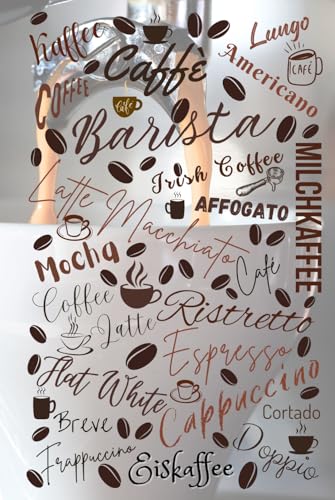 Kaffee
Lungo
Caffè
Americano
CAFÉ
COFFEE
Café
Barista
Irish Coffee
MILCHKAFFEE
Latte Macchiato
AFFOGATO
Mocha
Café
Coffee
Latte
Ristretto
Espresso
Flat White
Cappuccino
Breve
Cortado
Frappuccino
Doppio
Eiskaffee